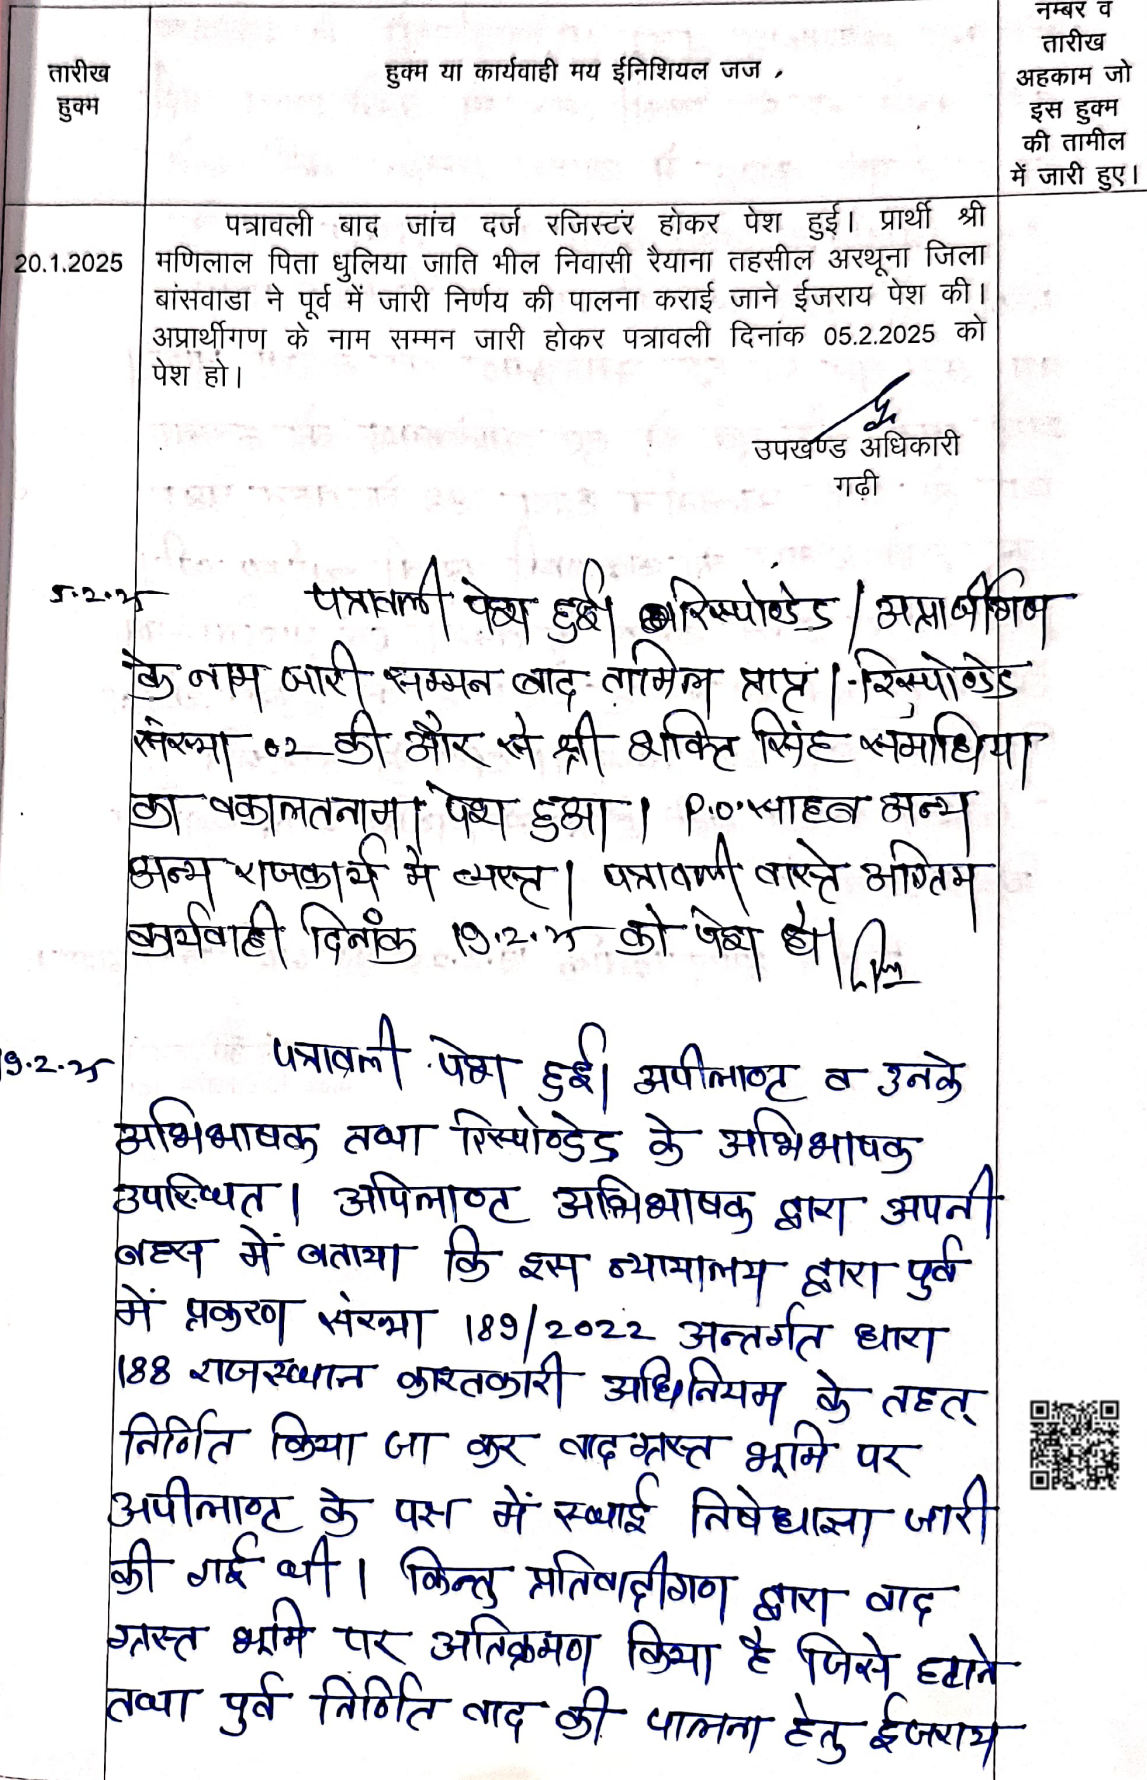 तारीख
हुक्म
हुक्म या कार्यवाही मय ईनिशियल जज
नम्बर व
तारीख
अहकाम जो
इस हुक्म
की तामील
में जारी हुए।
20.1.2025
पत्रावली बाद जांच दर्ज रजिस्टर होकर पेश हुई। प्रार्थी श्री
मणिलाल पिता धुलिया जाति भील निवासी रैयाना तहसील अरथूना जिला
बांसवाडा ने पूर्व में जारी निर्णय की पालना कराई जाने ईजराय पेश की।
अप्रार्थीगण के नाम सम्मन जारी होकर पत्रावली दिनांक 05.2.2025 को
पेश हो।
उपखण्ड अधिकारी
गढ़ी
5.2.25
पत्रावली पेश हुई। रिस्पोण्डेड / अप्रार्थीगण
के नाम जारी सम्मन बाद तामिल प्राप्त। रिस्पोण्डेड
संख्या 02 की और से श्री शक्ति सिंह समाधिया
का वकालतनामा पेश हुआ। P.O. साहब अन्य
अन्य राजकार्य में व्यस्त। पत्रावली वास्ते अग्रिम
कार्यवाही दिनांक 19.2.25 को पेश हो।
19.2.25
पत्रावली पेश हुई। अपीलाण्ट व उनके
अभिभाषक तथा रिस्पोण्डेड के अभिभाषक
उपस्थित। अपिलाण्ट अभिभाषक द्वारा अपनी
बहस में बताया कि इस न्यायालय द्वारा पुर्व
में प्रकरण संख्या 189/2022 अन्तर्गत धारा
188 राजस्थान काश्तकारी अधिनियम के तहत्
निर्णित किया जा कर वादग्रस्त भूमि पर
अपीलाण्ट के पक्ष में स्थाई निषेधाज्ञा जारी
की गई थी। किन्तु प्रतिवादीगण द्वारा वाद
ग्रस्त भूमि पर अतिक्रमण किया है जिसे हटाने
तथा पुर्व निर्णित वाद की पालना हेतु ईजराय